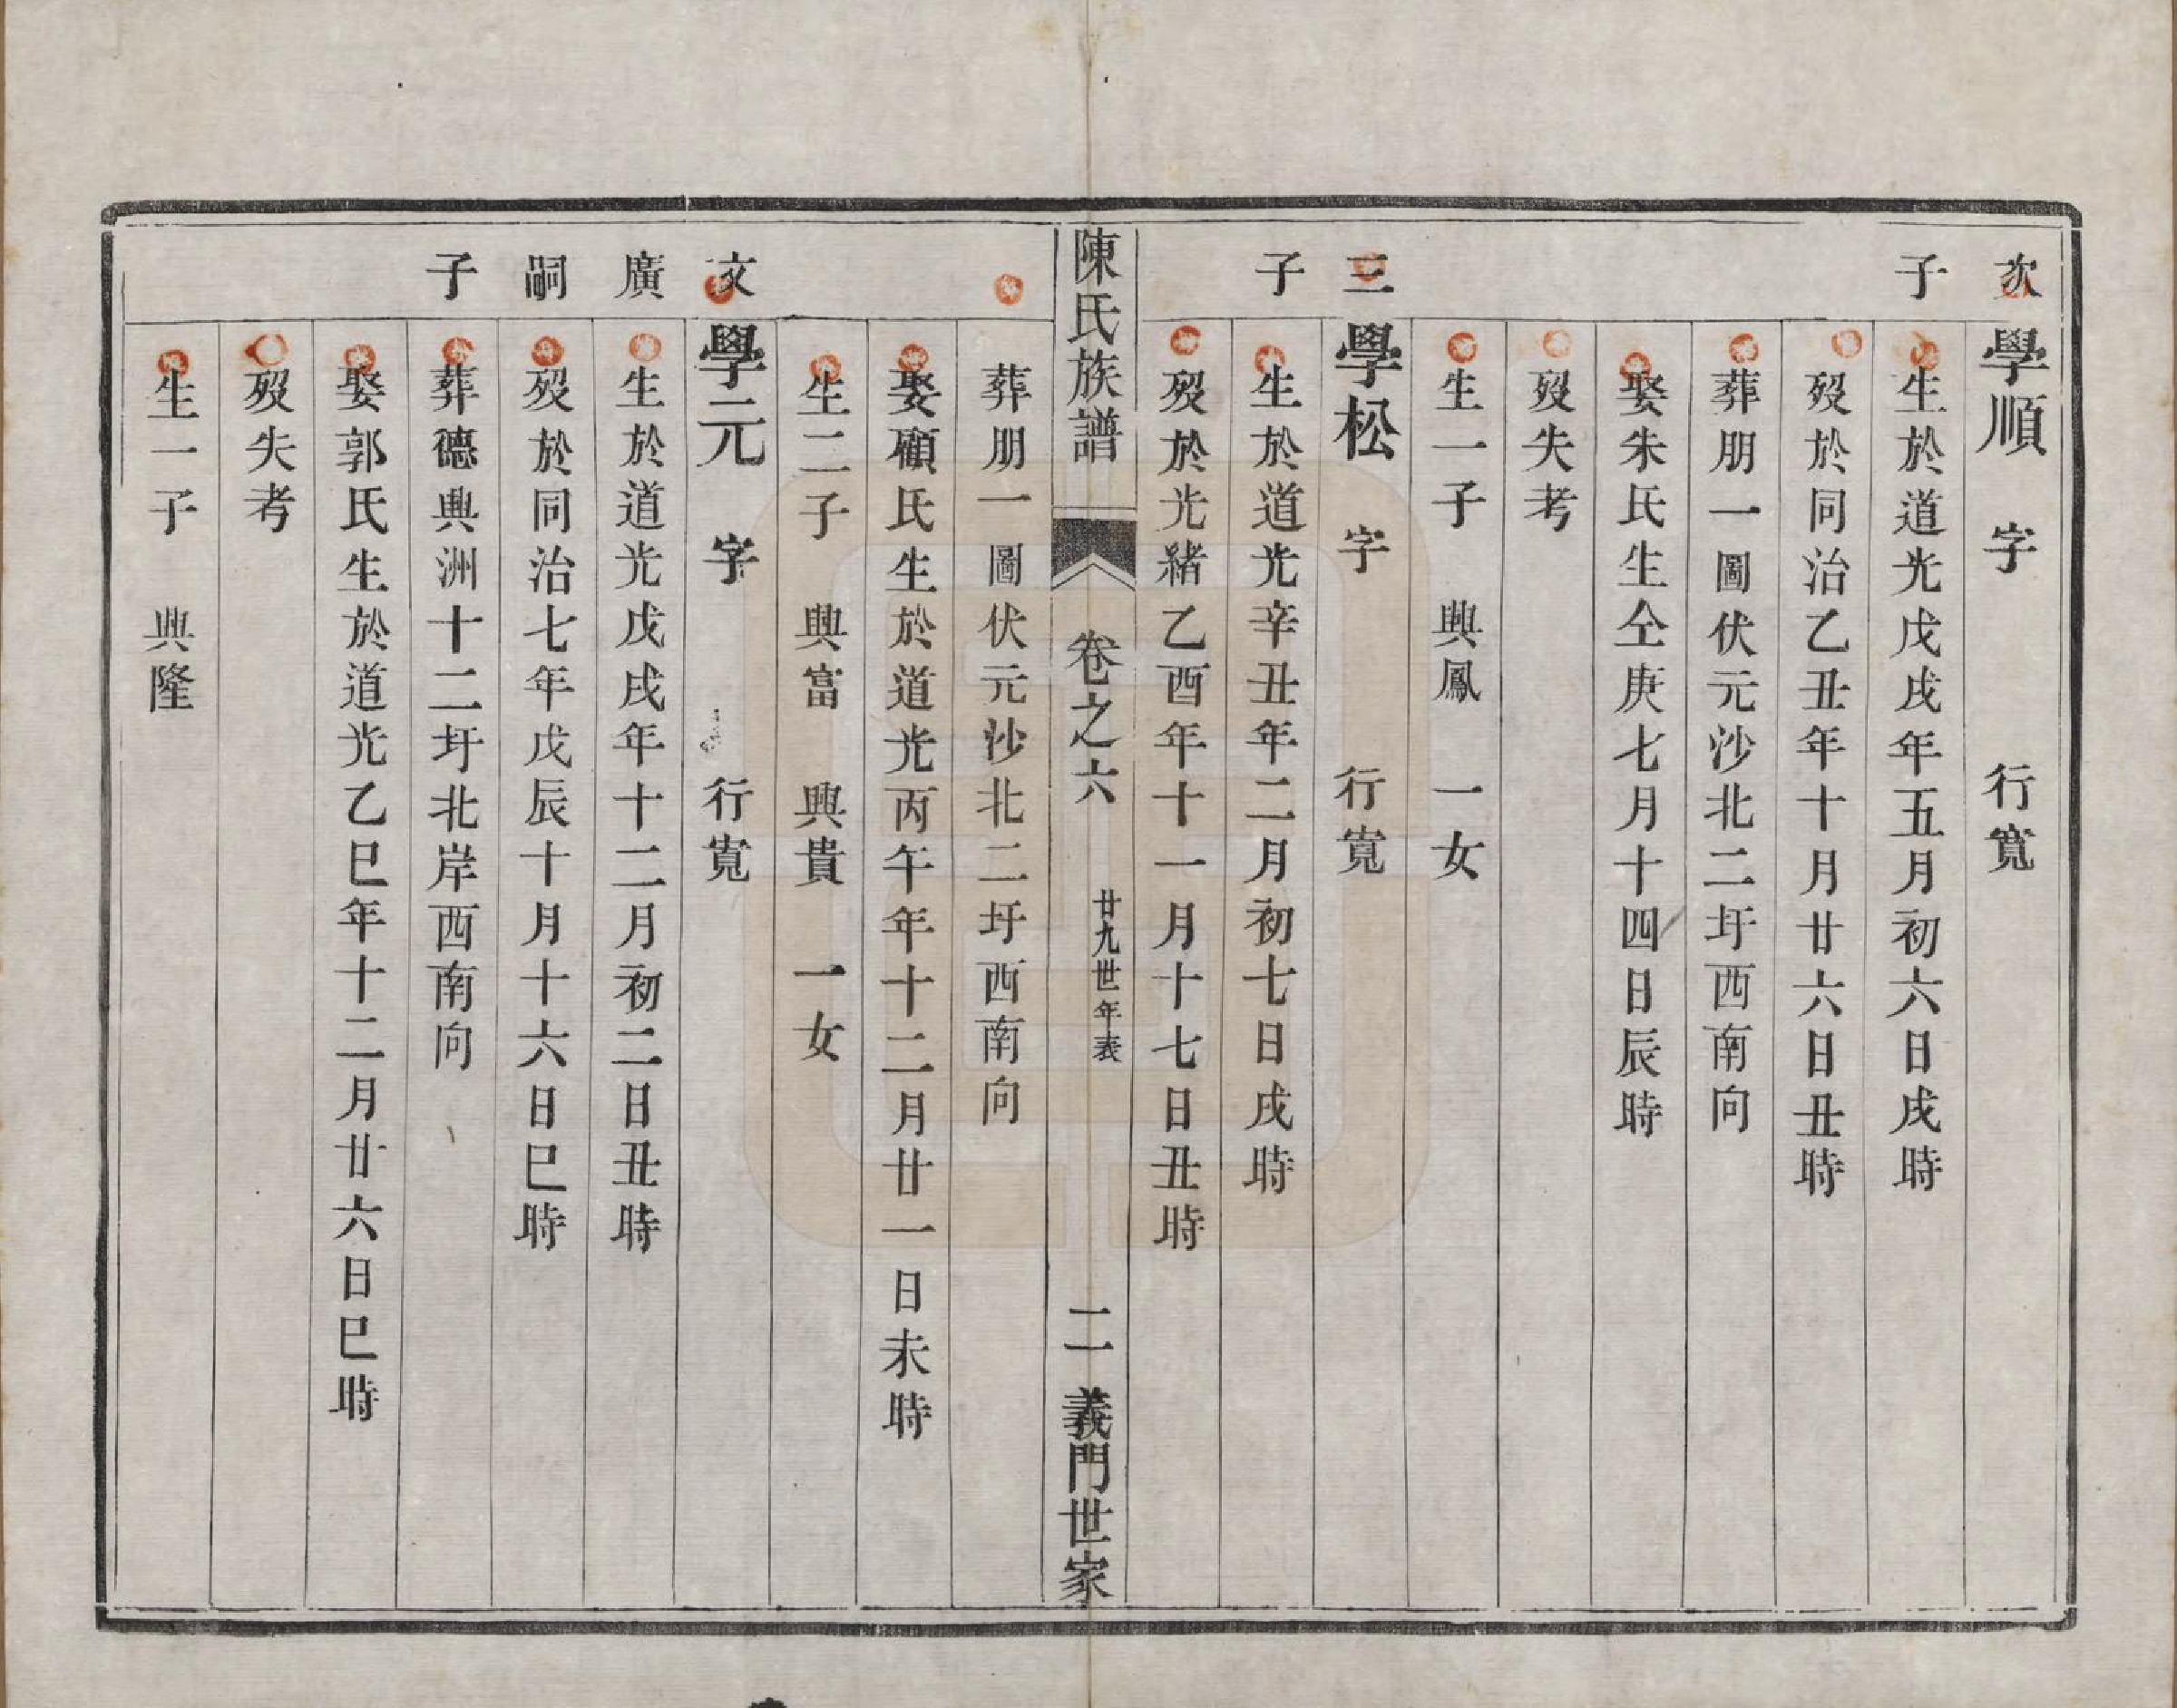 次子
學順　字　行寬
生於道光戊戌年五月初六日戌時
歿於同治乙丑年十月廿六日丑時
葬朋一圖伏元沙北二圩西南向
娶朱氏生仝庚七月十四日辰時
歿失考
生一子　興鳳　一女
三子
學松　字　行寬
生於道光辛丑年二月初七日戌時
歿於光緒乙酉年十一月十七日丑時
陳氏族譜　卷之六　廿九世年表　二　義門世家
葬朋一圖伏元沙北二圩西南向
娶顧氏生於道光丙午年十二月廿一日未時
生二子　興富　興貴　一女
文廣嗣子
學元　字　行寬
生於道光戊戌年十二月初二日丑時
歿於同治七年戊辰十月十六日巳時
葬德興洲十二圩北岸西南向
娶郭氏生於道光乙巳年十二月廿六日巳時
歿失考
生一子　興隆